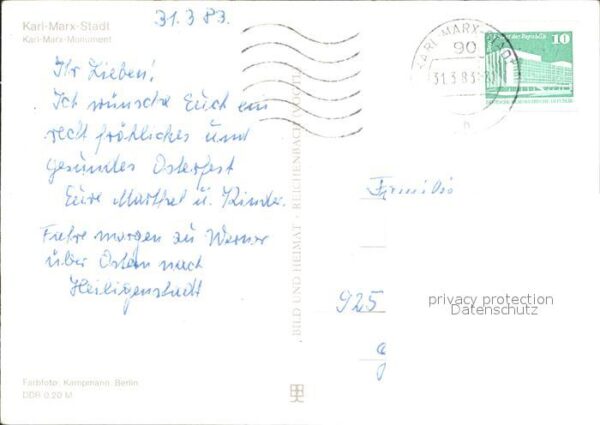 31.3.83.
Karl-Marx-Stadt
Karl-Marx-Monument
Ihr Lieben!
Ich wünsche Euch ein
recht fröhliches und
gesundes Osterfest
Eure Marthel u. Kinder.
Fahre morgen zu Werner
über Ostern nach
Heiligenstadt
Farbfoto: Kampmann, Berlin
DDR 0,20 M
BILD UND HEIMAT · REICHENBACH (VOGTL)
KARL-MARX-STADT
90
31.3.83
n
10
Palast der Republik
DEUTSCHE DEMOKRATISCHE REPUBLIK
Familie
925
g
privacy protection
Datenschutz